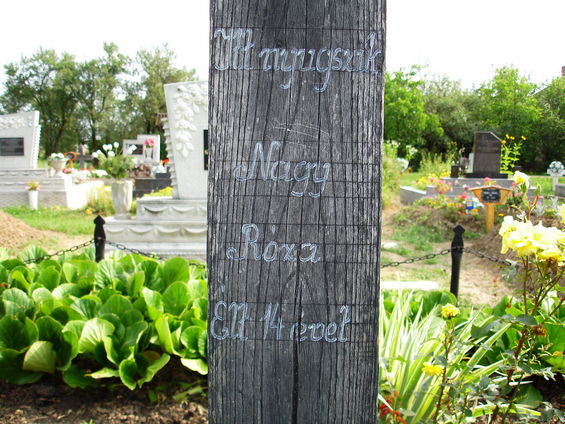 Itt nyugszik
Nagy
Róza
Élt 14 évet